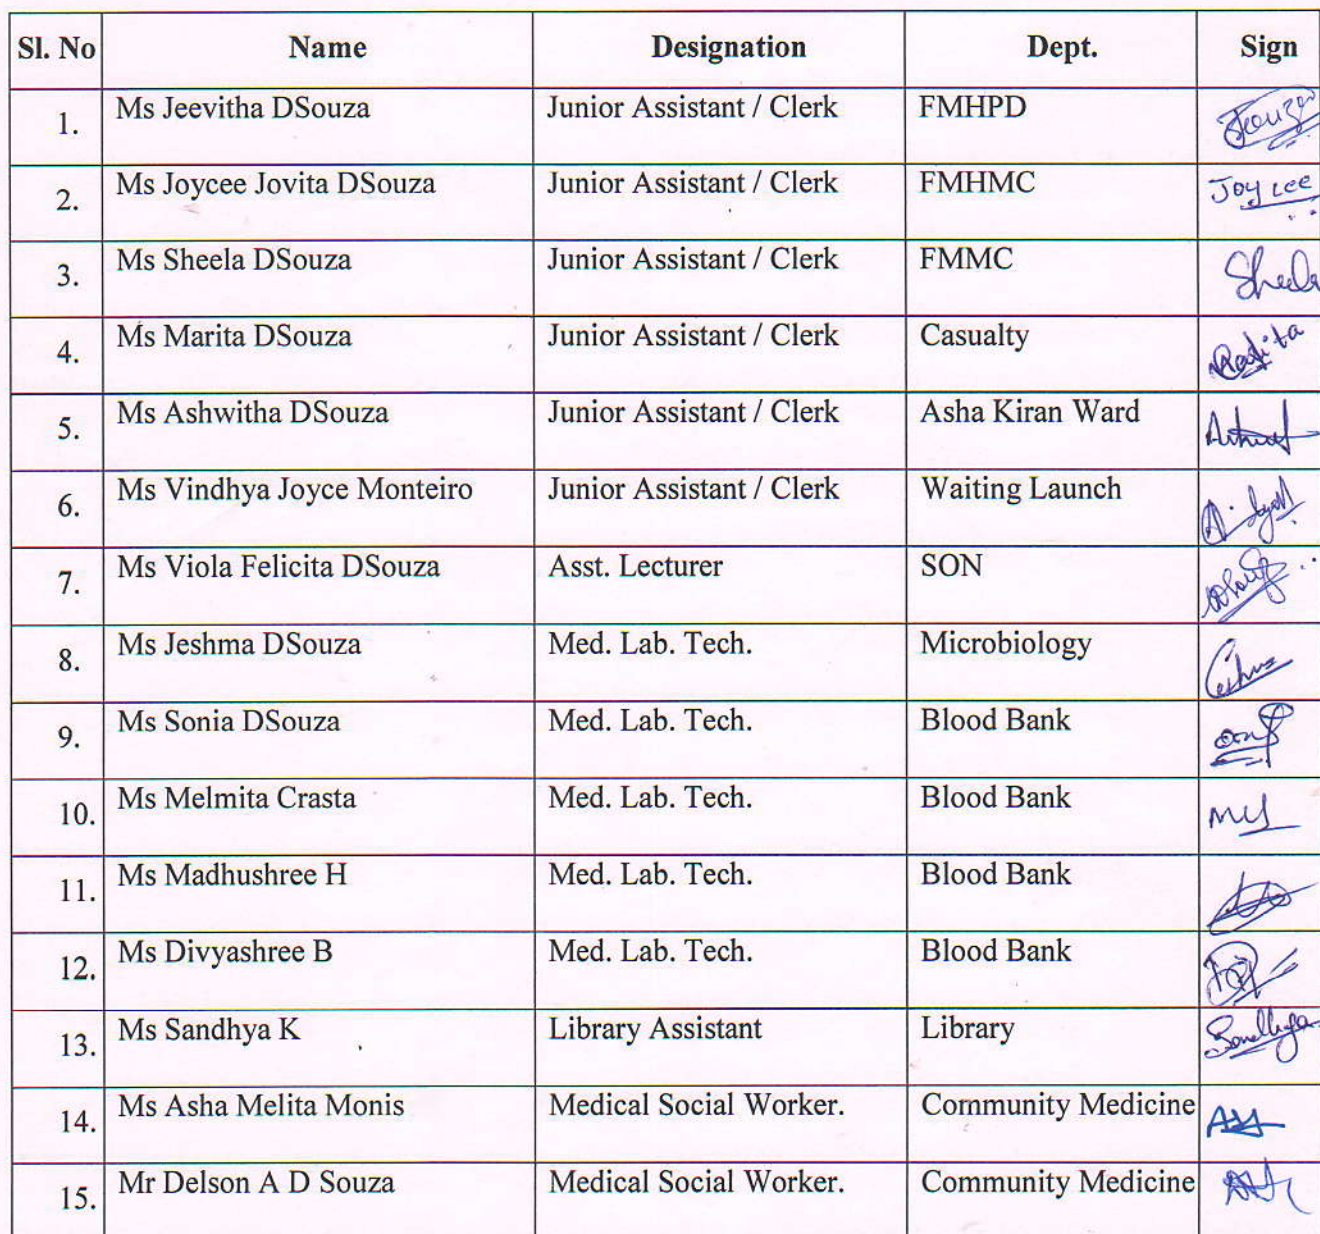 Sl. No Name Designation Dept. Sign
1. Ms Jeevitha DSouza Junior Assistant / Clerk FMHPD
2. Ms Joycee Jovita DSouza Junior Assistant / Clerk FMHMC Joycee
3. Ms Sheela DSouza Junior Assistant / Clerk FMMC Sheela
4. Ms Marita DSouza Junior Assistant / Clerk Casualty
5. Ms Ashwitha DSouza Junior Assistant / Clerk Asha Kiran Ward
6. Ms Vindhya Joyce Monteiro Junior Assistant / Clerk Waiting Launch
7. Ms Viola Felicita DSouza Asst. Lecturer SON
8. Ms Jeshma DSouza Med. Lab. Tech. Microbiology
9. Ms Sonia DSouza Med. Lab. Tech. Blood Bank
10. Ms Melmita Crasta Med. Lab. Tech. Blood Bank
11. Ms Madhushree H Med. Lab. Tech. Blood Bank
12. Ms Divyashree B Med. Lab. Tech. Blood Bank
13. Ms Sandhya K Library Assistant Library Sandhya
14. Ms Asha Melita Monis Medical Social Worker. Community Medicine
15. Mr Delson A D Souza Medical Social Worker. Community Medicine